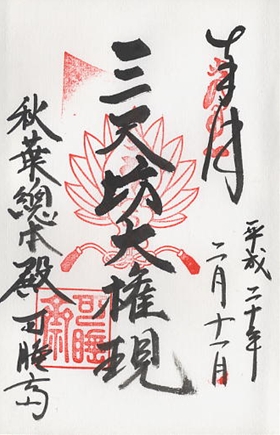 奉拝
平成二十年
二月十一日
三尺坊大権現
秋葉總本殿可睡斎